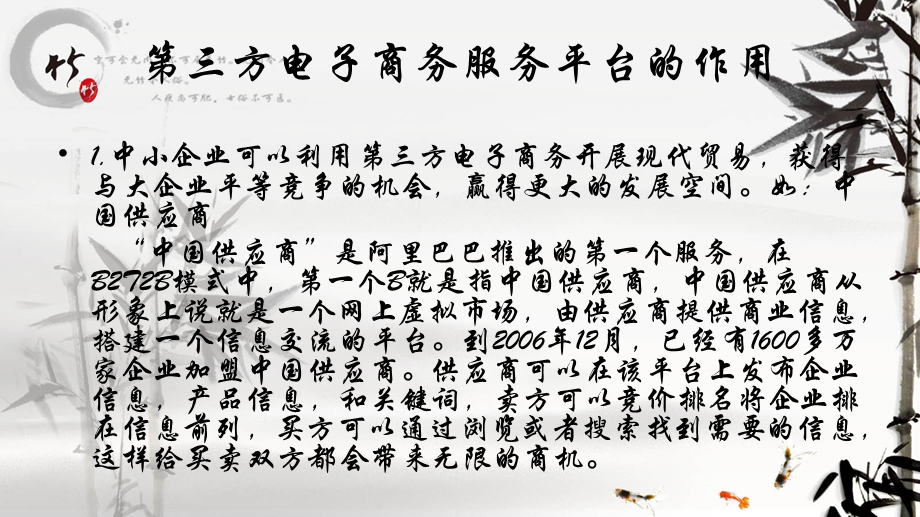 第三方电子商务服务平台的作用
• 1.中小企业可以利用第三方电子商务开展现代贸易，获得
与大企业平等竞争的机会，赢得更大的发展空间。如：中
国供应商
“中国供应商”是阿里巴巴推出的第一个服务，在
B2T2B模式中，第一个B就是指中国供应商，中国供应商从
形象上说就是一个网上虚拟市场，由供应商提供商业信息，
搭建一个信息交流的平台。到2006年12月，已经有1600多万
家企业加盟中国供应商。供应商可以在该平台上发布企业
信息，产品信息，和关键词，卖方可以竞价排名将企业排
在信息前列，买方可以通过浏览或者搜索找到需要的信息，
这样给买卖双方都会带来无限的商机。